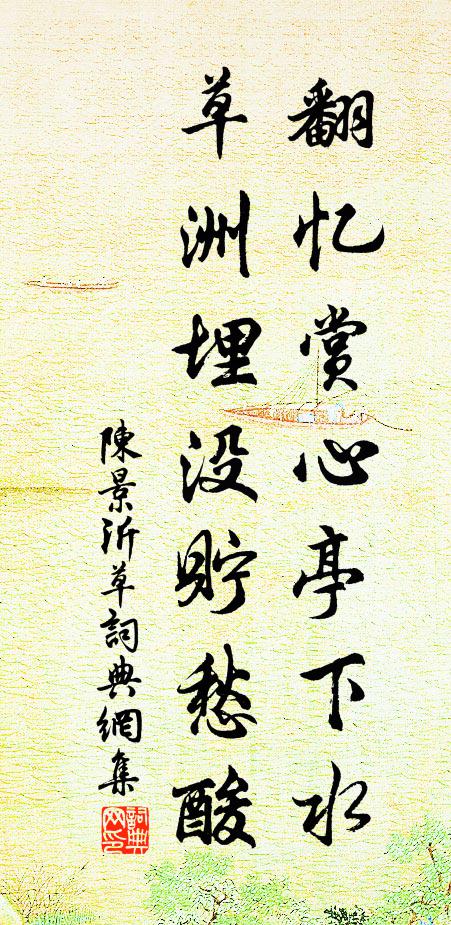 翻忆赏心亭下水
草洲埋没貯愁酸
陳景沂草詞典網集
詞典網印